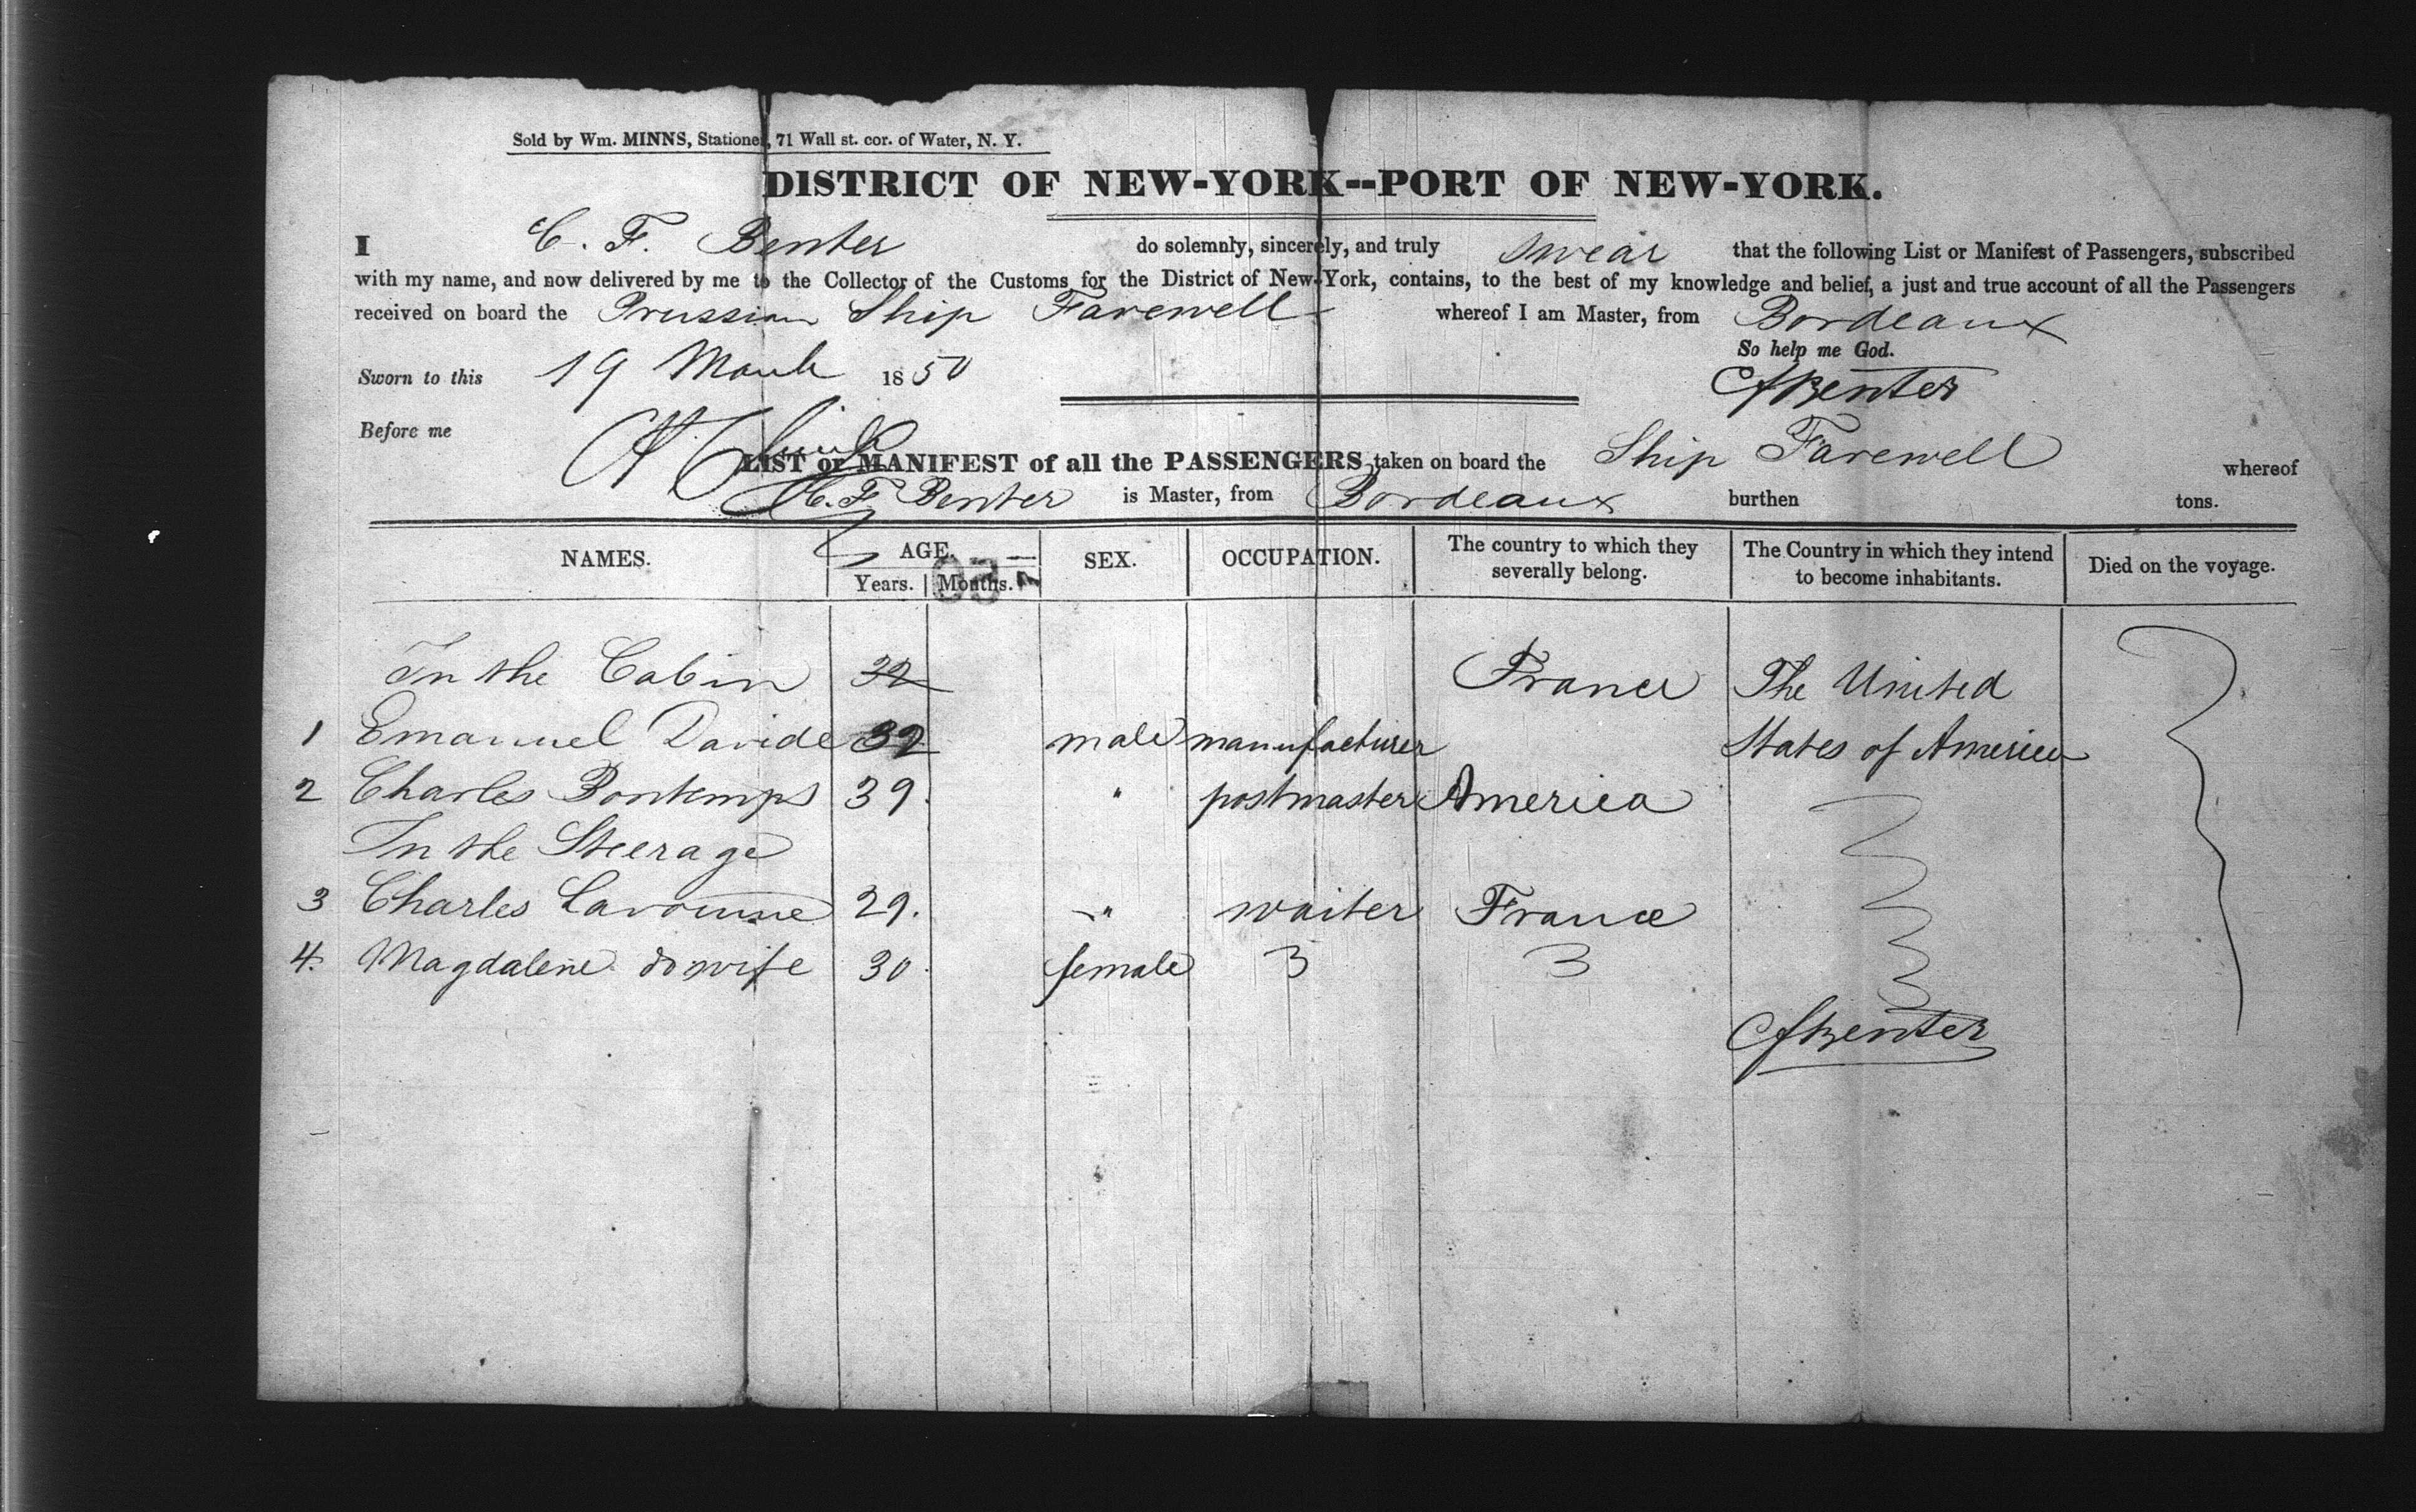 Sold by Wm. MINNS, Stationer, 71 Wall st. cor. of Water, N. Y.
DISTRICT OF NEW-YORK--PORT OF NEW-YORK.
I C. F. Benter do solemnly, sincerely, and truly swear that the following List or Manifest of Passengers, subscribed
with my name, and now delivered by me to the Collector of the Customs for the District of New-York, contains, to the best of my knowledge and belief, a just and true account of all the Passengers
received on board the Prussian Ship Farewell whereof I am Master, from Bordeaux
So help me God.
Sworn to this 19 March 1850
CFBenter
Before me
LIST or MANIFEST of all the PASSENGERS taken on board the Ship Farewell whereof
C. F. Benter is Master, from Bordeaux burthen tons.
NAMES. AGE. Years. Months. SEX. OCCUPATION. The country to which they severally belong. The Country in which they intend to become inhabitants. Died on the voyage.
In the Cabin 32 France The United
1 Emanuel Davide 32 male manufacturer States of America
2 Charles Bontemps 39. " postmaster America
In the Steerage
3 Charles 29. " waiter France
4. Magdalene do wife 30. female
CFBenter